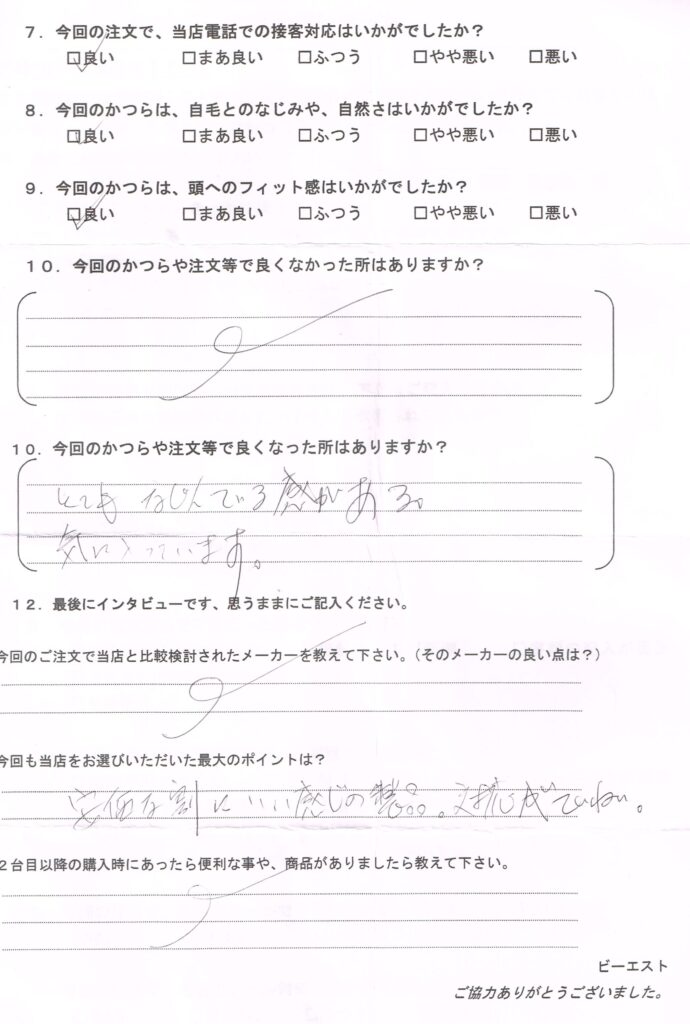 7．今回の注文で、当店電話での接客対応はいかがでしたか？
☑良い □まあ良い □ふつう □やや悪い □悪い
8．今回のかつらは、自毛とのなじみや、自然さはいかがでしたか？
☑良い □まあ良い □ふつう □やや悪い □悪い
9．今回のかつらは、頭へのフィット感はいかがでしたか？
☑良い □まあ良い □ふつう □やや悪い □悪い
１０．今回のかつらや注文等で良くなかった所はありますか？
10．今回のかつらや注文等で良くなった所はありますか？
とても なじんでいる感がある。
気に入っています。
１２．最後にインタビューです、思うままにご記入ください。
今回のご注文で当店と比較検討されたメーカーを教えて下さい。（そのメーカーの良い点は？）
今回も当店をお選びいただいた最大のポイントは？
安価な割にいい感じの製品。対応がていねい。
２台目以降の購入時にあったら便利な事や、商品がありましたら教えて下さい。
ビーエスト
ご協力ありがとうございました。